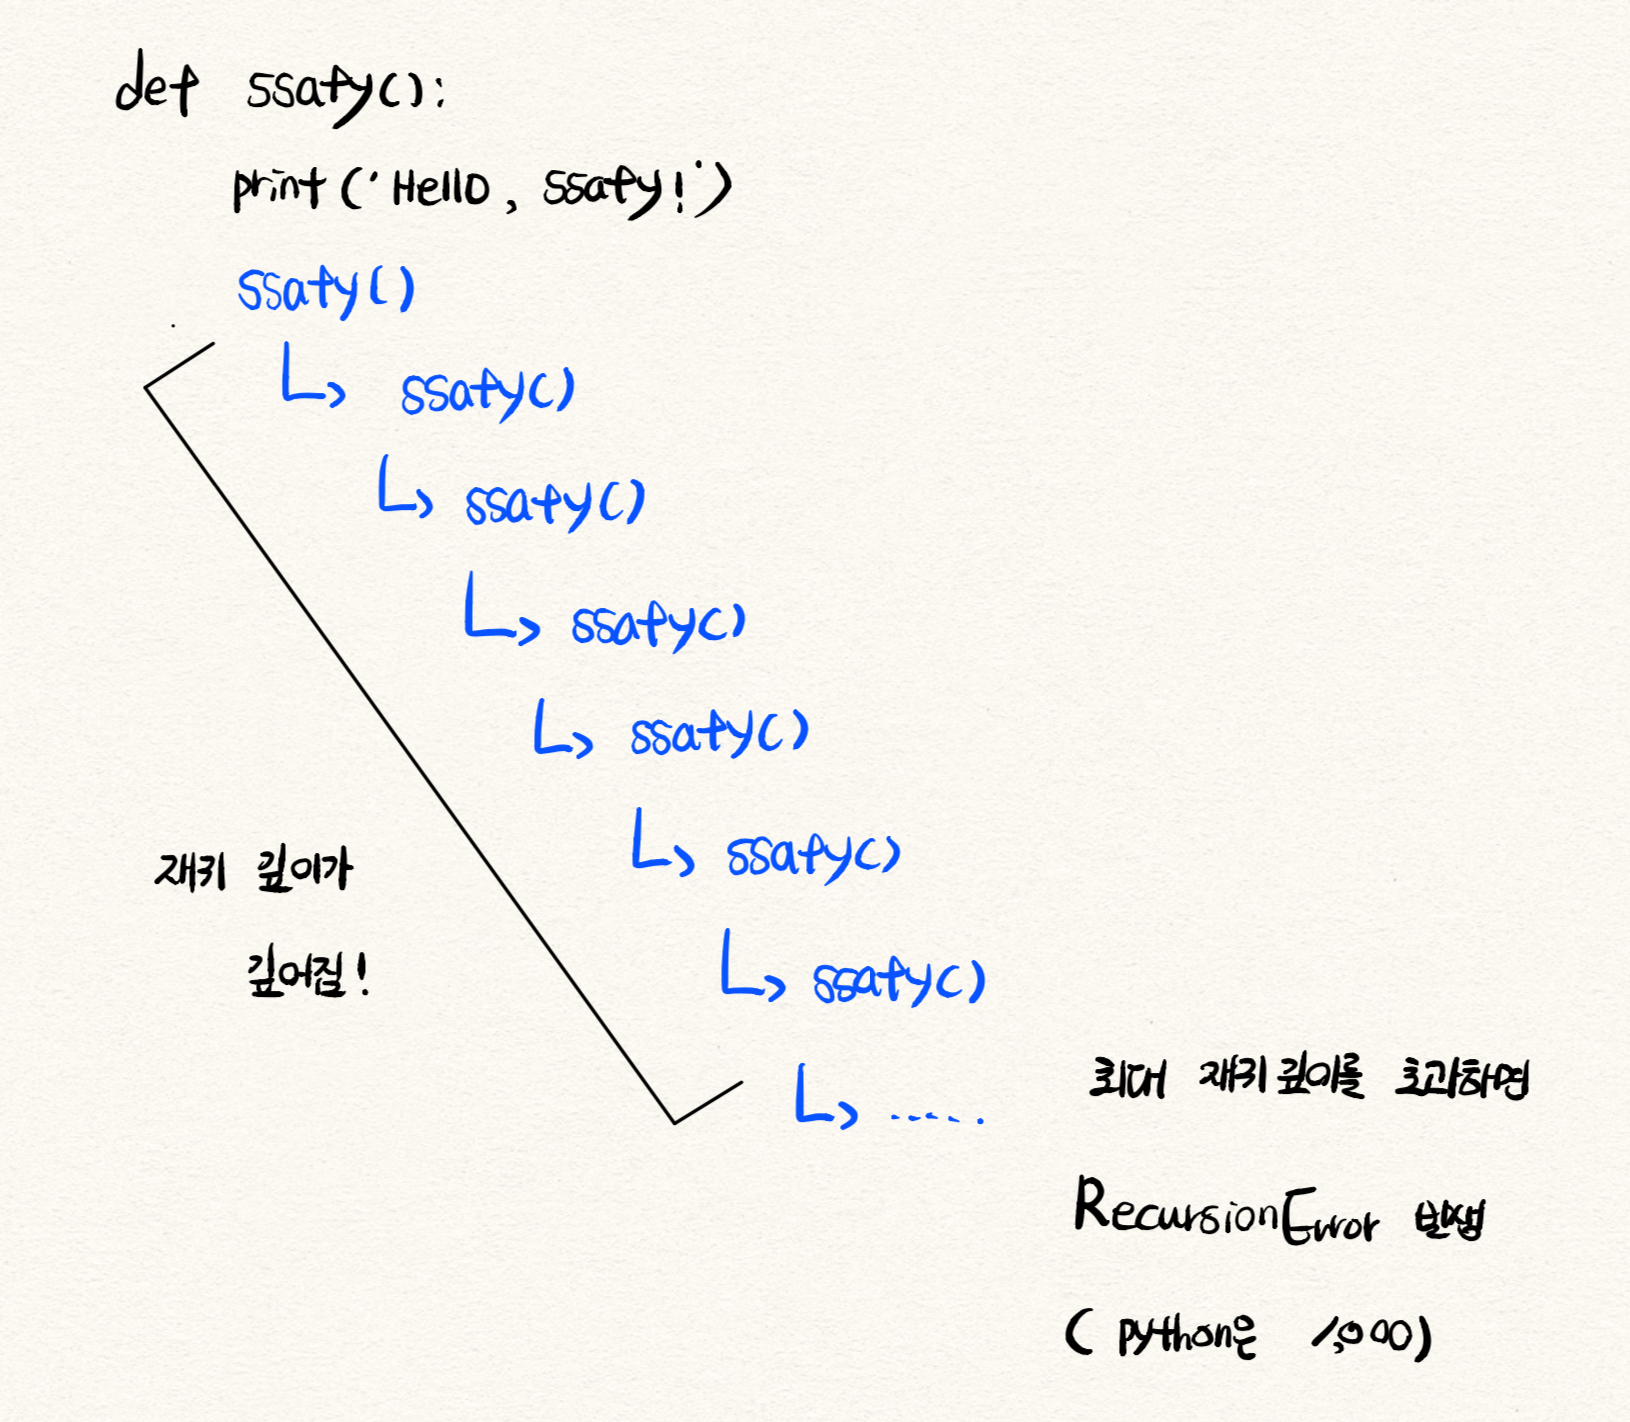 def ssafy():
print('Hello, ssafy!')
ssafy()
ssafy()
ssafy()
ssafy()
ssafy()
ssafy()
ssafy()
.....
재귀 깊이가
깊어짐!
최대 재귀 깊이를 초과하면
RecursionError 발생
(python은 1,000)